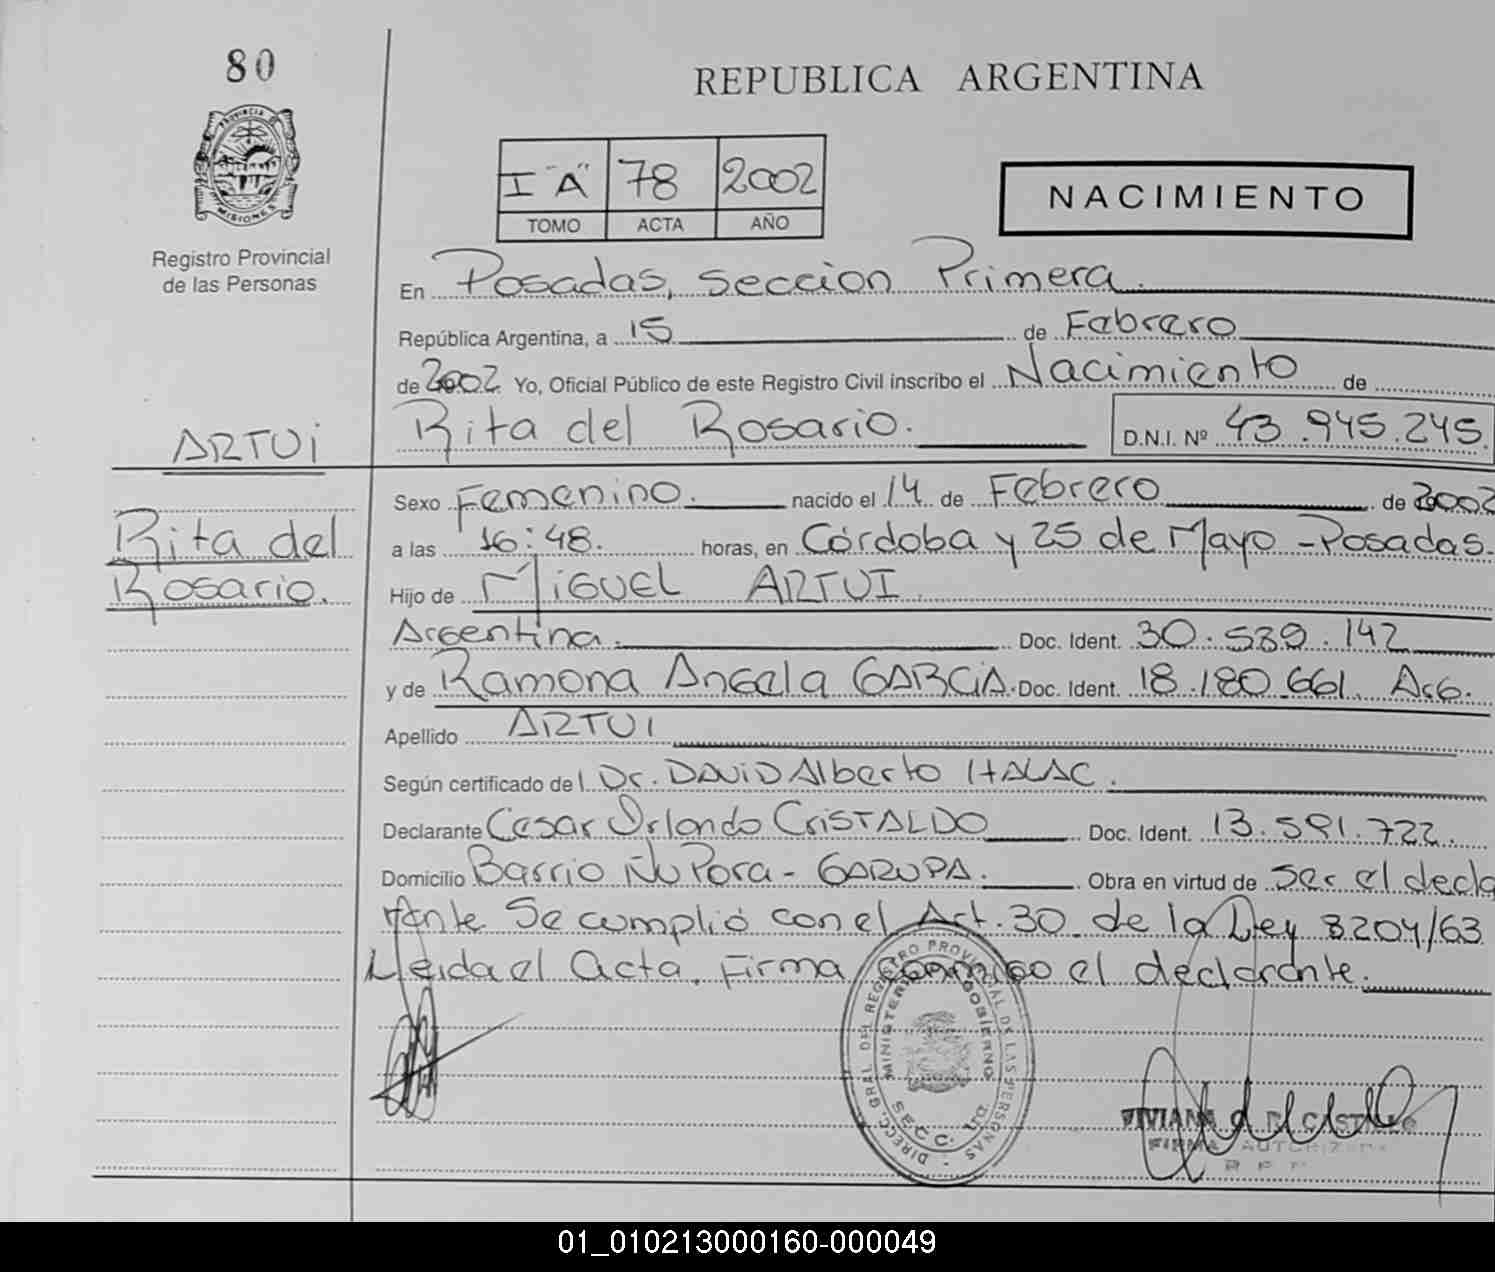 80
REPUBLICA ARGENTINA
PROVINCIA DE
MISIONES
Registro Provincial
de las Personas
I "A" 78 2002
TOMO ACTA AÑO
NACIMIENTO
En Posadas, seccion Primera.
República Argentina, a 15 de Febrero
de 2002. Yo, Oficial Público de este Registro Civil inscribo el Nacimiento de
ARTUi
Rita del Rosario. D.N.I. Nº 43.945.245
Rita del
Rosario.
Sexo Femenino. nacido el 14 de Febrero de 2002
a las 16:48. horas, en Córdoba y 25 de Mayo - Posadas.
Hijo de MiGUEL ARTUI
Argentina. Doc. Ident. 30.589.142
y de Ramona Angela GARCiA. Doc. Ident. 18.180.661. Arg.
Apellido ARTUI
Según certificado del Dr. DAViD Alberto
Declarante Cesar Orlando CRiSTALDO Doc. Ident. 13.591.722.
Domicilio Barrio Ñu Pora - GARUPA. Obra en virtud de ser el decla
rante Se cumplió con el Art. 30 de la Ley 8204/63
Leida el acta, Firma conmigo el declarante.
DIRECC. GRAL. DEL REGISTRO PROVINCIAL DE LAS PERSONAS
MINISTERIO GOBIERNO
SECC.
VIVIANA DEL CASTILLO
FIRMA AUTORIZADA
01_010213000160-000049